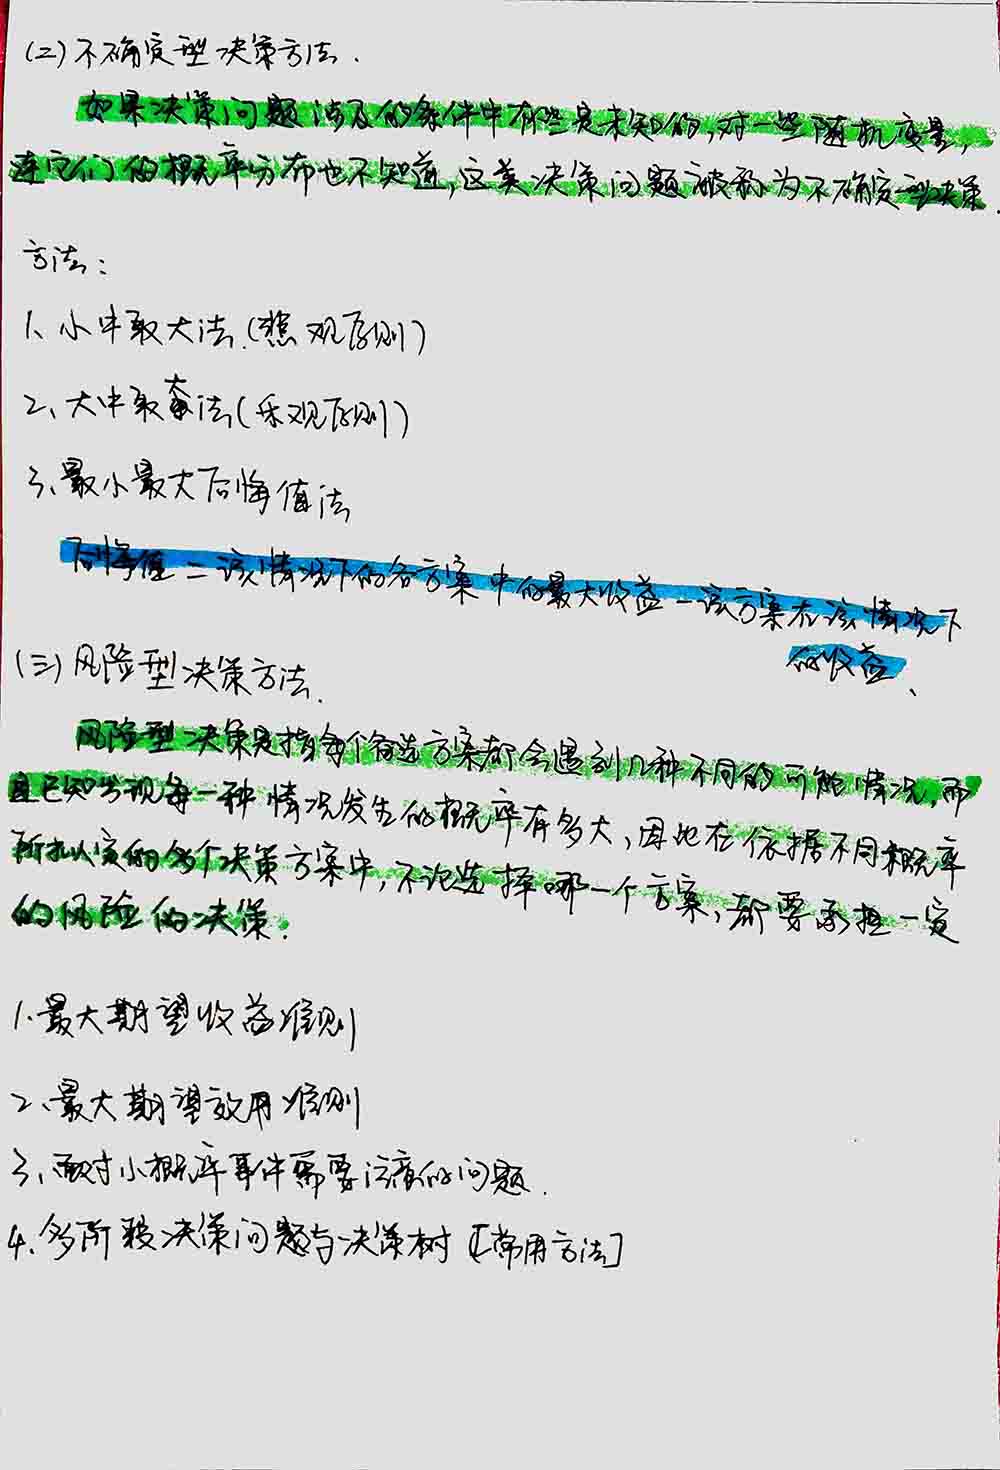 (二)不确定型决策方法.
如果决策问题涉及的条件中有些是未知的,对一些随机变量,
连它们的概率分布也不知道,这类决策问题被称为不确定型决策.
方法:
1、小中取大法.(悲观原则)
2、大中取大法(乐观原则)
3、最小最大后悔值法
后悔值=该情况下的各方案中的最大收益-该方案在该情况下
的收益、
(三)风险型决策方法.
风险型决策是指每个备选方案都会遇到几种不同的可能情况,而
且已知出现每一种情况发生的概率有多大,因此在依据不同概率
所拟定的多个决策方案中,不论选择哪一个方案,都要承担一定
的风险的决策.
1.最大期望收益准则
2、最大期望效用准则
3、面对小概率事件需要注意的问题.
4.多阶段决策问题与决策树[常用方法]